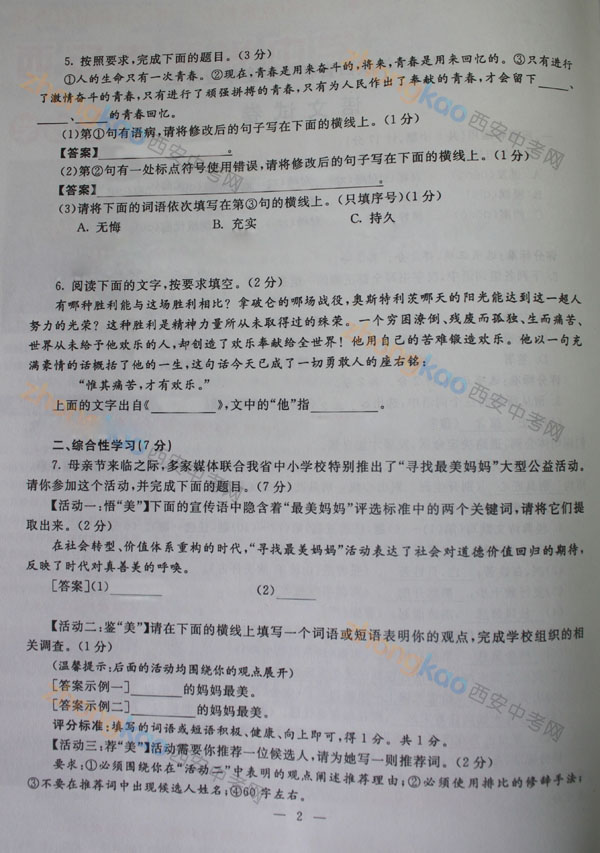 5. 按照要求,完成下面的题目。(3分)
①人的生命只有一次青春。②现在,青春是用来奋斗的,将来,青春是用来回忆的。③只有进行
了激情奋斗的青春,只有进行了顽强拼搏的青春,只有为人民作出了奉献的青春,才会留下____、
____、____的青春回忆。
(1)第①句有语病,请将修改后的句子写在下面的横线上。(1分)
【答案】____________。
(2)第②句有一处标点符号使用错误,请将修改后的句子写在下面的横线上。(1分)
【答案】____________。
(3)请将下面的词语依次填写在第③句的横线上。(只填序号)(1分)
A. 无悔 B. 充实 C. 持久
6. 阅读下面的文字,按要求填空。(2分)
有哪种胜利能与这场胜利相比?拿破仑的哪场战役,奥斯特利茨哪天的阳光能达到这一超人
努力的光荣?这种胜利是精神力量所从未取得过的殊荣。一个穷困潦倒、残废而孤独、生而痛苦、
世界从未给予他欢乐的人,却创造了欢乐奉献给全世界!他用自己的苦难锻造欢乐。他以一句充
满豪情的话概括了他的一生,这句话今天已成了一切勇敢人的座右铭:
“惟其痛苦,才有欢乐。”
上面的文字出自《________》,文中的“他”指________。
二、综合性学习(7分)
7. 母亲节来临之际,多家媒体联合我省中小学校特别推出了“寻找最美妈妈”大型公益活动。
请你参加这个活动,并完成下面的题目。(7分)
【活动一:悟“美”】下面的宣传语中隐含着“最美妈妈”评选标准中的两个关键词,请将它们提
取出来。(2分)
在社会转型、价值体系重构的时代,“寻找最美妈妈”活动表达了社会对道德价值回归的期待,
反映了时代对真善美的呼唤。
[答案](1)______ (2)______
【活动二:鉴“美”】请在下面的横线上填写一个词语或短语表明你的观点,完成学校组织的相
关调查。(1分)
(温馨提示:后面的活动均围绕你的观点展开)
[答案示例一]______的妈妈最美。
[答案示例二]______的妈妈最美。
评分标准:填写的词语或短语积极、健康、向上即可,得1分。共1分。
【活动三:荐“美”】活动需要你推荐一位候选人,请为她写一则推荐词。(2分)
要求:①必须围绕你在“活动二”中表明的观点阐述推荐理由;②必须使用排比的修辞手法;
③不要在推荐词中出现候选人姓名;④60字左右。
— 2 —
zhongkao 西安中考网
zhongkao 西安中考网
zhongkao 西安中考网